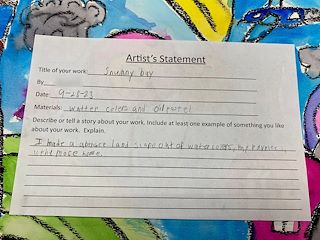 Artist's Statement
Title of your work: Snunny bay
By
Date: 9-28-23
Materials: watter colers and Oil pastel
Describe or tell a story about your work. Include at least one example of something you like
about your work. Explain.
I made a land out of watercolers, my
is the